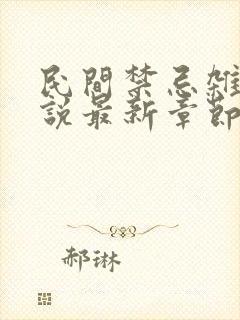 民間禁忌雜
說最新章節
郝琳